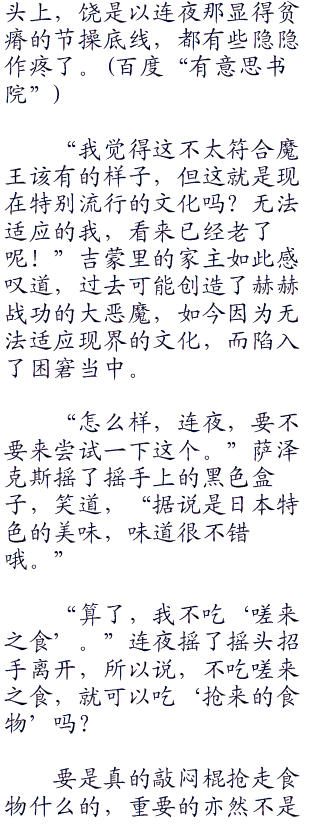 头上，饶是以连夜那显得贫
瘠的节操底线，都有些隐隐
作疼了。(百度“有意思书
院”)
“我觉得这不太符合魔
王该有的样子，但这就是现
在特别流行的文化吗？无法
适应的我，看来已经老了
呢！”吉蒙里的家主如此感
叹道，过去可能创造了赫赫
战功的大恶魔，如今因为无
法适应现界的文化，而陷入
了困窘当中。
“怎么样，连夜，要不
要来尝试一下这个。”萨泽
克斯摇了摇手上的黑色盒
子，笑道，“据说是日本特
色的美味，味道很不错
哦。”
“算了，我不吃‘嗟来
之食’。”连夜摇了摇头招
手离开，所以说，不吃嗟来
之食，就可以吃‘抢来的食
物’吗？
要是真的敲闷棍抢走食
物什么的，重要的亦然不是